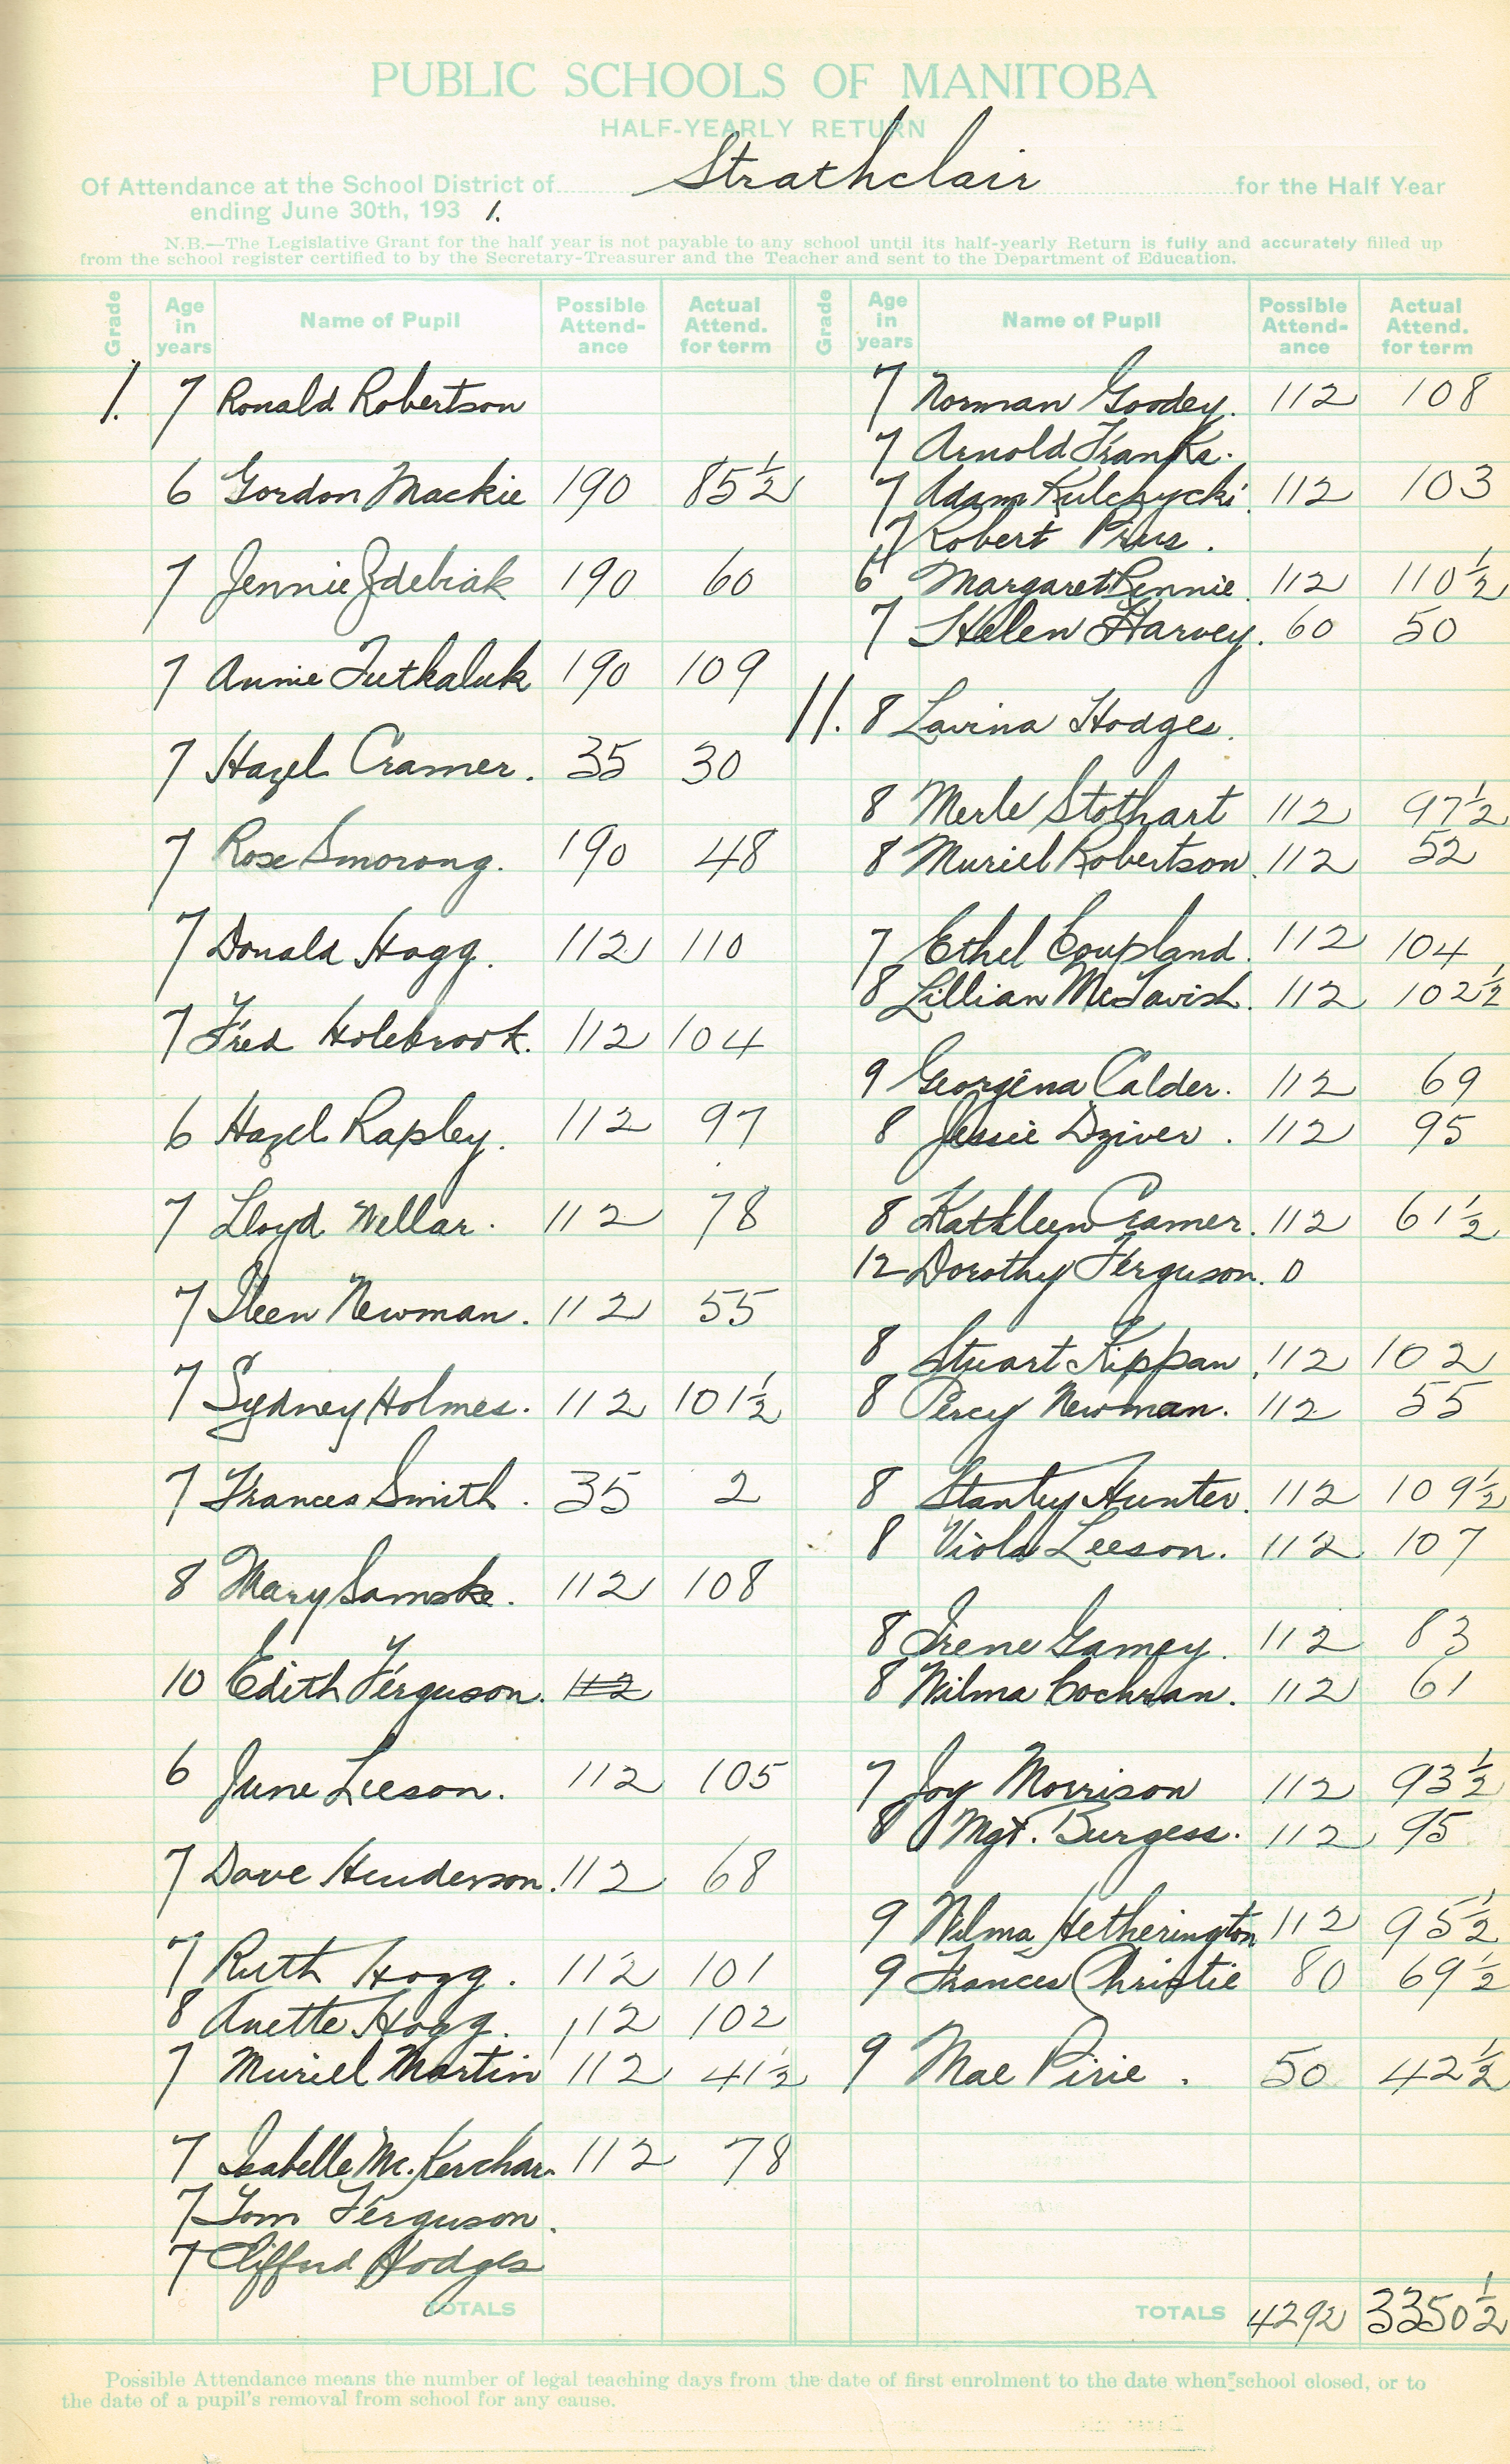 PUBLIC SCHOOLS OF MANITOBA
HALF-YEARLY RETURN
Of Attendance at the School District of Strathclair for the Half Year
ending June 30th, 193 1.
N.B.—The Legislative Grant for the half year is not payable to any school until its half-yearly Return is fully and accurately filled up
from the school register certified to by the Secretary-Treasurer and the Teacher and sent to the Department of Education.
Grade Age in years Name of Pupil Possible Attend-ance Actual Attend. for term
1. 7 Ronald Robertson
6 Gordon Mackie 190 85½
7 Jennie Zdebiak 190 60
7 Annie Tutkaluk 190 109
7 Hazel Cramer. 35 30
7 Rose Smorong. 190 48
7 Donald Hogg. 112 110
7 Fred Holebrook. 112 104
6 Hazel Rapley. 112 97
7 Lloyd Wellar. 112 78
7 Ileen Newman. 112 55
7 Sydney Holmes. 112 101½
7 Frances Smith. 35 2
8 Mary Samske. 112 108
10 Edith Ferguson. 112
6 June Leeson. 112 105
7 Dave Henderson. 112 68
7 Ruth Hogg. 112 101
8 Anette Hogg. 112 102
7 Muriel Martin 112 41½
7 Isabelle Mc.Kerchar. 112 78
7 Tom Ferguson.
7 Clifford Hodges
TOTALS
Grade Age in years Name of Pupil Possible Attend-ance Actual Attend. for term
7 Norman Goodey. 112 108
7 Arnold Franka.
7 Adam Kulchycki 112 103
7 Robert Prus.
6 Margaret Rennie. 112 110½
7 Helen Harvey. 60 50
11. 8 Lavina Hodges.
8 Merle Stothart 112 97½
8 Muriel Robertson. 112 52
7 Ethel Coupland. 112 104
8 Lillian McTavish. 112 102½
9 Georgina Calder. 112 69
8 Jessie Dziver. 112 95
8 Kathleen Cramer. 112 61½
12 Dorothy Ferguson. 0
8 Stuart Kippan. 112 102
8 Percy Newman. 112 55
8 Stanley Hunter. 112 109½
8 Viola Leeson. 112 107
8 Irene Gamey. 112 83
8 Wilma Cochran. 112 61
7 Joy Morrison 112 93½
8 Mgt. Burgess. 112 95
9 Wilma Hetherington 112 95½
9 Frances Christie 80 69½
9 Mae Pirie. 50 42½
TOTALS 4292 3350½
Possible Attendance means the number of legal teaching days from the date of first enrolment to the date when school closed, or to
the date of a pupil's removal from school for any cause.